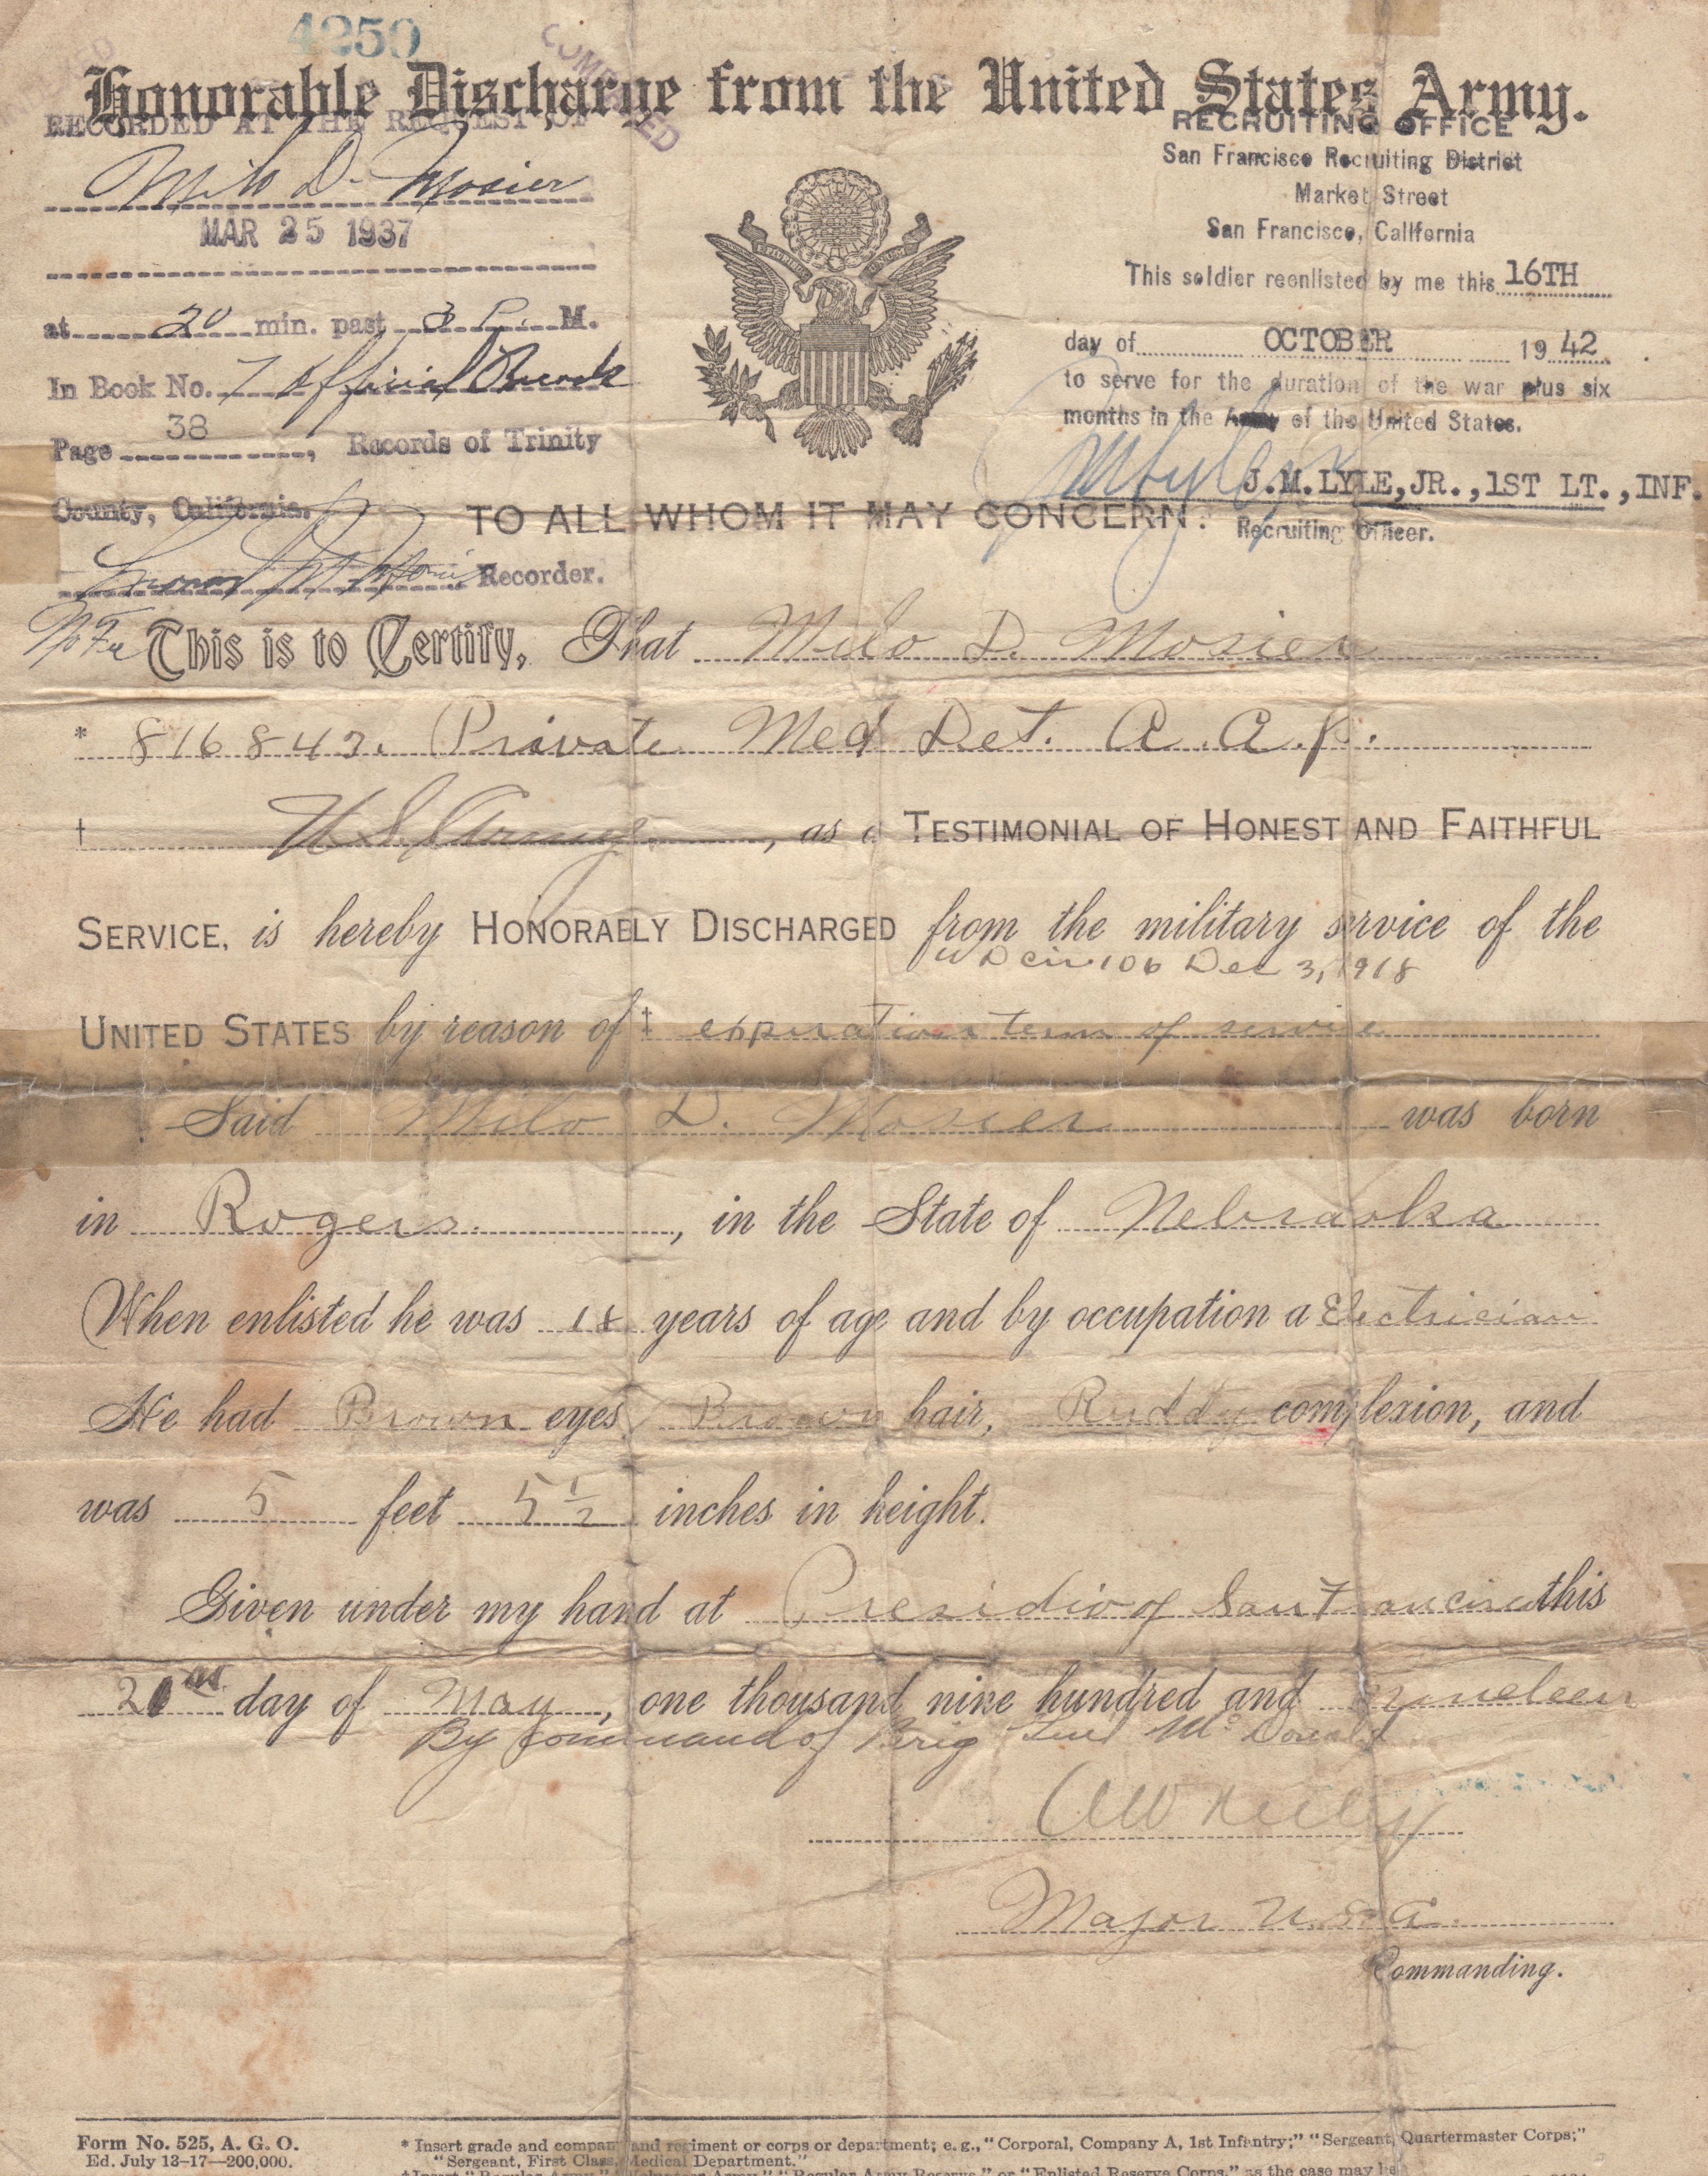 4250
COMPARED
Honorable Discharge from the United States Army.
RECORDED AT THE REQUEST OF
Milo D. Mosier
MAR 25 1937
at 20 min. past 3 P. M.
In Book No. 7 Official Records
Page 38, Records of Trinity
County, California.
Recorder.
No Fee
RECRUITING OFFICE
San Francisco Recruiting District
Market Street
San Francisco, California
This soldier reenlisted by me this 16TH
day of OCTOBER 1942.
to serve for the duration of the war plus six
months in the Army of the United States.
J.M.LYLE,JR.,1ST LT.,INF.
Recruiting Officer.
TO ALL WHOM IT MAY CONCERN:
This is to Certify, That Milo D. Mosier
* 816843. Private Med Det. A.A.P.
† U.S. Army, as a TESTIMONIAL OF HONEST AND FAITHFUL
SERVICE, is hereby HONORABLY DISCHARGED from the military service of the
W D Cir 106 Dec 3, 1918
UNITED STATES by reason of ‡ expiration term of service
Said Milo D. Mosier was born
in Rogers., in the State of Nebraska
When enlisted he was 18 years of age and by occupation a Electrician
He had Brown eyes, Brown hair, Ruddy complexion, and
was 5 feet 5 1/2 inches in height.
Given under my hand at Presidio of San Francisco this
day of May, one thousand nine hundred and nineteen
By command of Brig Genl McDonald
Major U.S.A.
Commanding.
Form No. 525, A. G. O.
Ed. July 13-17—200,000.
* Insert grade and company and regiment or corps or department; e. g., "Corporal, Company A, 1st Infantry;" "Sergeant, Quartermaster Corps;"
"Sergeant, First Class, Medical Department."
† Insert "Regular Army," "Volunteer Army," "Regular Army Reserve," or "Enlisted Reserve Corps," as the case may be